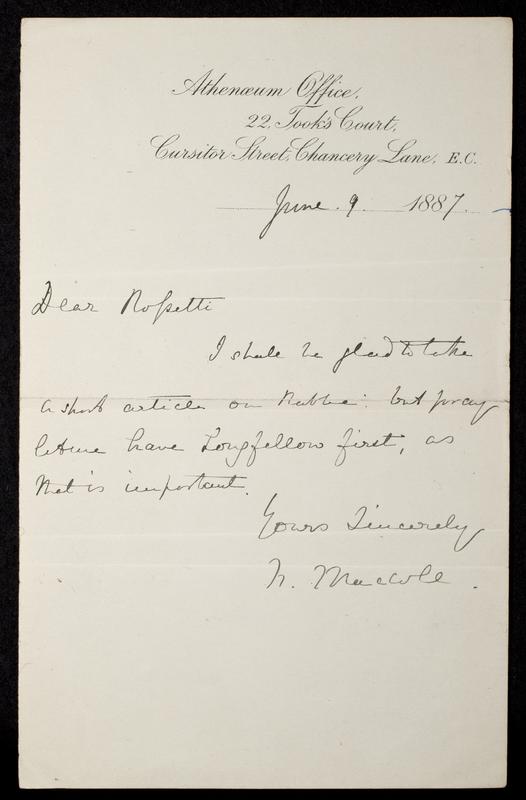 Athenæum Office,
22, Took's Court,
Cursitor Street, Chancery Lane, E.C.
June 9 1887
Dear Rossetti
I shall be glad to take
a short article on : but pray
let me have Longfellow first, as
that is important.
Yours Sincerely
N. MacColl.